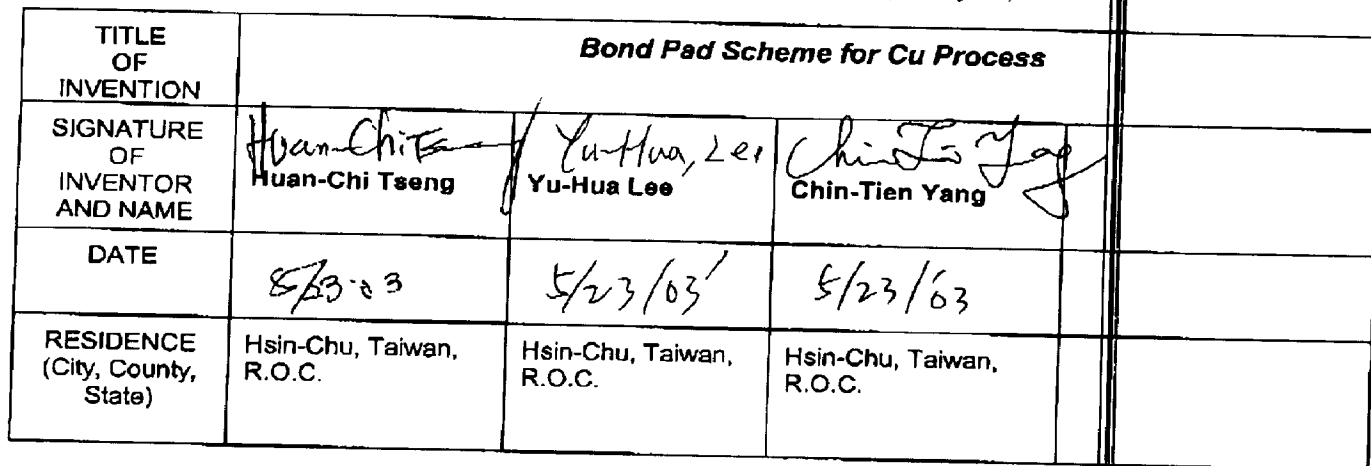 TITLE
OF
INVENTION
Bond Pad Scheme for Cu Process
SIGNATURE
OF
INVENTOR
AND NAME
Huan-Chi
Yu-Hua, Lee
Huan-Chi Tseng
Yu-Hua Lee
Chin-Tien Yang
DATE
5/23/03
5/23/03
RESIDENCE
(City, County,
State)
Hsin-Chu, Taiwan,
R.O.C.
Hsin-Chu, Taiwan,
R.O.C.
Hsin-Chu, Taiwan,
R.O.C.